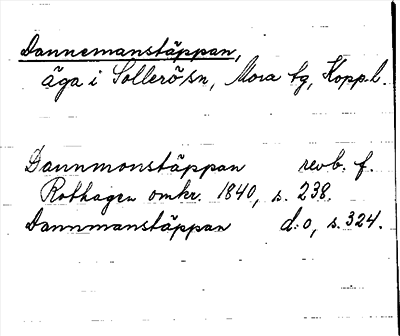 Dannemanstäppan,
äga i Sollerö sn, Mora tg, Kopp. l.
Dannmonstäppan revb. f.
Rothagen omkr. 1840, s. 238.
Dannmanstäppan d:o, s. 324.